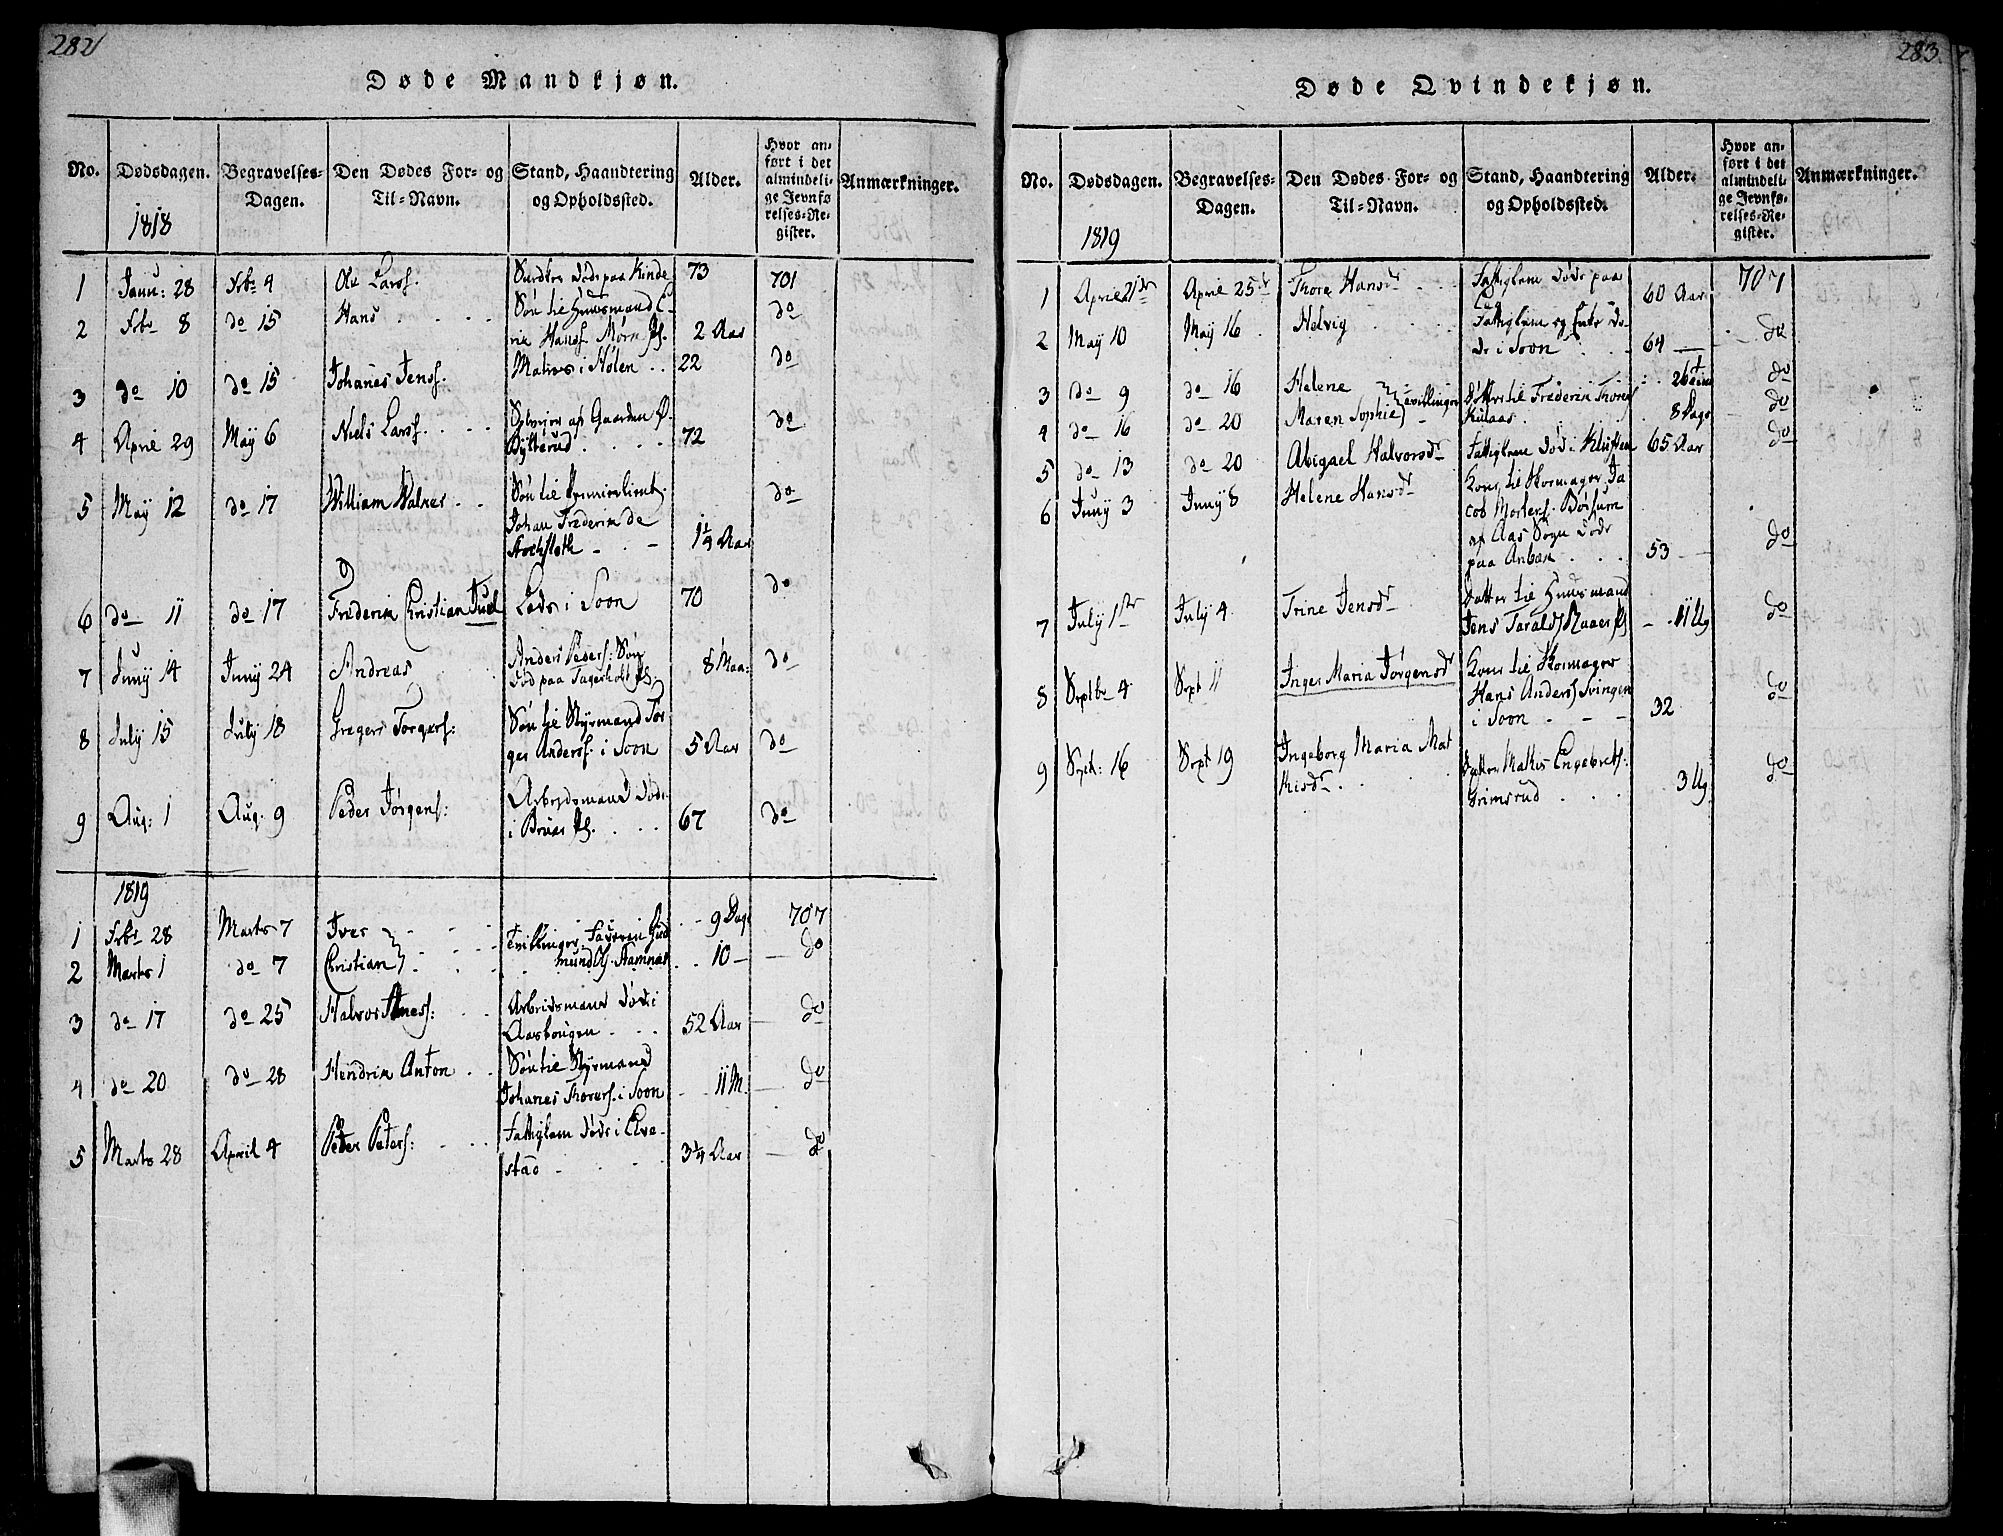 282
Døde Mandkjøn.
No. Dødsdagen. Begravelses-Dagen. Den Dødes For- og Til-Navn. Stand, Haandtering og Opholdssted. Alder. Hvor anført i det almindelige Jevnførelses-Register. Anmærkninger.
1818
1 Janu: 28 Febr 4 Ole Larss. døde paa Kinde 73 701
2 Febr 8 do 15 Hans Søn til Huusmand E-
rik Hanss. Mørk Pl. 2 Aar do
3 do 10 do 15 Johanes Jenss. Matros i Hølen 22 do
4 April 29 May 6 Niels Larss. af Gaarden Ø.
72 do
5 May 12 do 17 William Walner Søn til Premierlieut.
Johan Frederik de
Stockfleth 1¼ Aar do
6 do 11 do 17 Frederik Christian Juel Lods i Soon 70 do
7 Juny 14 Juny 24 Andreas Anders Peders: Søn
død paa Fagerholt Pl. 8 Maa: do
8 July 15 July 18 Gregers Torgers: Søn til Styrmand Tor
ger Anderss. i Soon 5 Aar do
9 Aug: 1 Aug. 9 Peder Jørgens: Arbeidsmand døde
i Pl. 67 do
1819
1 Febr 28 Marts 7 Iver Tvillinger, Gud 9 Dage 707
2 Marts 1 do 7 Christian mund 10 — do
3 do 17 do 25 Halvor Arbeidsmand døde i
52 Aar do
4 do 20 do 28 Hendrik Anton Søn til Styrmand
Johanes Thorers. i Soon 11 M. do
5 Marts 28 April 4 Peter Peters: Fattiglem døde i Elve-
stad 3¼ Aar do
283.
Døde Qvindekjøn.
No. Dødsdagen. Begravelses-Dagen. Den Dødes For- og Til-Navn. Stand, Haandtering og Opholdssted. Alder. Hvor anført i det almindelige Jevnførelses-Register. Anmærkninger.
1819
1 April 21de April 25de Thore Hansdr Fattiglem døde paa
60 Aar 707
2 May 10 May 16 Helvig Fattiglem og Enke dø-
de i Soon 64 — do
3 do 9 do 16 Helene } tvillinger Døttre til Frederik Thores 26 do
4 do 16 do 20 Maren Sophie 8 Dage do
5 do 13 do 20 Abigael Halvorsdr Fattiglem død i Kluften 65 Aar do
6 Juny 3 Juny 8 Helene Hansdr Kone til Skomager Ja
cob Mortens. Børsum
af Aas Sogn døde
paa 53 do
7 July 1ste July 4 Trine Jensdr Datter til Huusmand
Jens Tarals Pl 11 Ug do
8 Septbr 4 Sept 11 Inger Maria Jørgensdr Kone til Skomager
Hans Anderss Svingen
i Soon 32 do
9 Sept: 16 Sept 19 Ingeborg Maria Mat
hisdr Datter Mathis Engebrets:
Grimsrud 3 Ug do